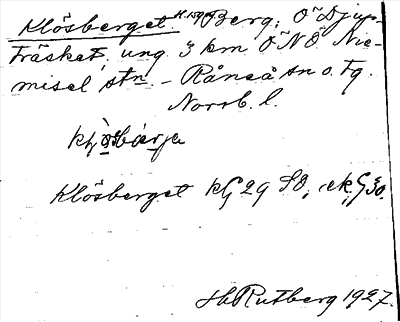 Klösberget. Berg; O Djup-
träsket, ung. 3 km ONO Nie-
misel stn – Råneå sn o. tg.
Norrb. l.
Klösberget kG 29 SO, ek. G 30.
H. Rutberg 1927.